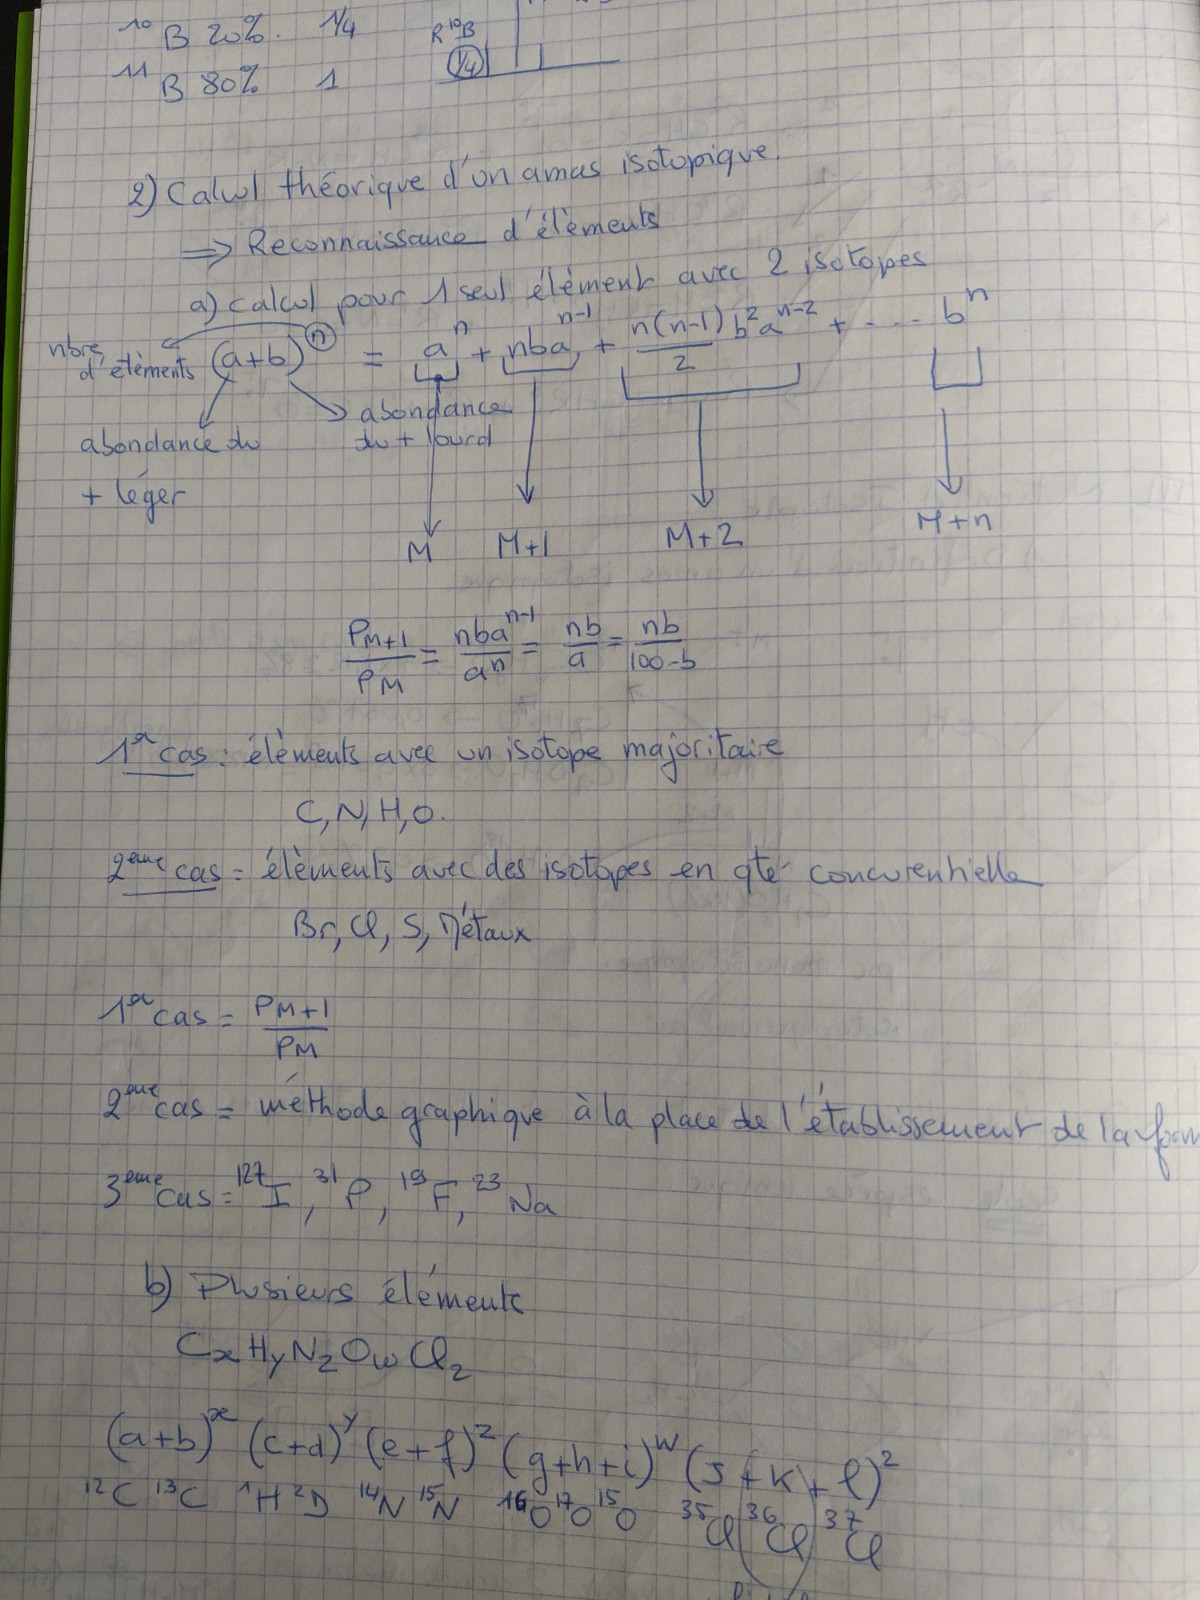 ¹⁰B 20%. 1/4 R¹⁰B
¹¹B 80% 1 (1/4)
2) Calcul théorique d'un amas isotopique.
⟹ Reconnaissance d'élèments
a) calcul pour 1 seul élément avec 2 isotopes
nbre d'élèments (a+b)ⁿ = aⁿ + nbaⁿ⁻¹ + n(n-1)/2 b²aⁿ⁻² + - - -- bⁿ
abondance du + léger
abondance du + lourd
M M+1 M+2 M+n
PM+1/PM = nbaⁿ⁻¹/aⁿ = nb/a = nb/100-b
1er cas : élèments avec un isotope majoritaire
C, N, H, O.
2ème cas = élèments avec des isotopes en qte concurentielle
Br, Cl, S, Métaux
1er cas = PM+1/PM
2ème cas = méthode graphique à la place de l'établissement de la form
3ème cas = ¹²⁷I, ³¹P, ¹⁹F, ²³Na
b) Plusieurs éléments
CxHyNzOwCl2
(a+b)ˣ (c+d)ʸ (e+f)ᶻ (g+h+i)ʷ (J+K+l)²
¹²C ¹³C ¹H ²D ¹⁴N ¹⁵N ¹⁶O ¹⁷O ¹⁵O ³⁵Cl ³⁶Cl ³⁷Cl